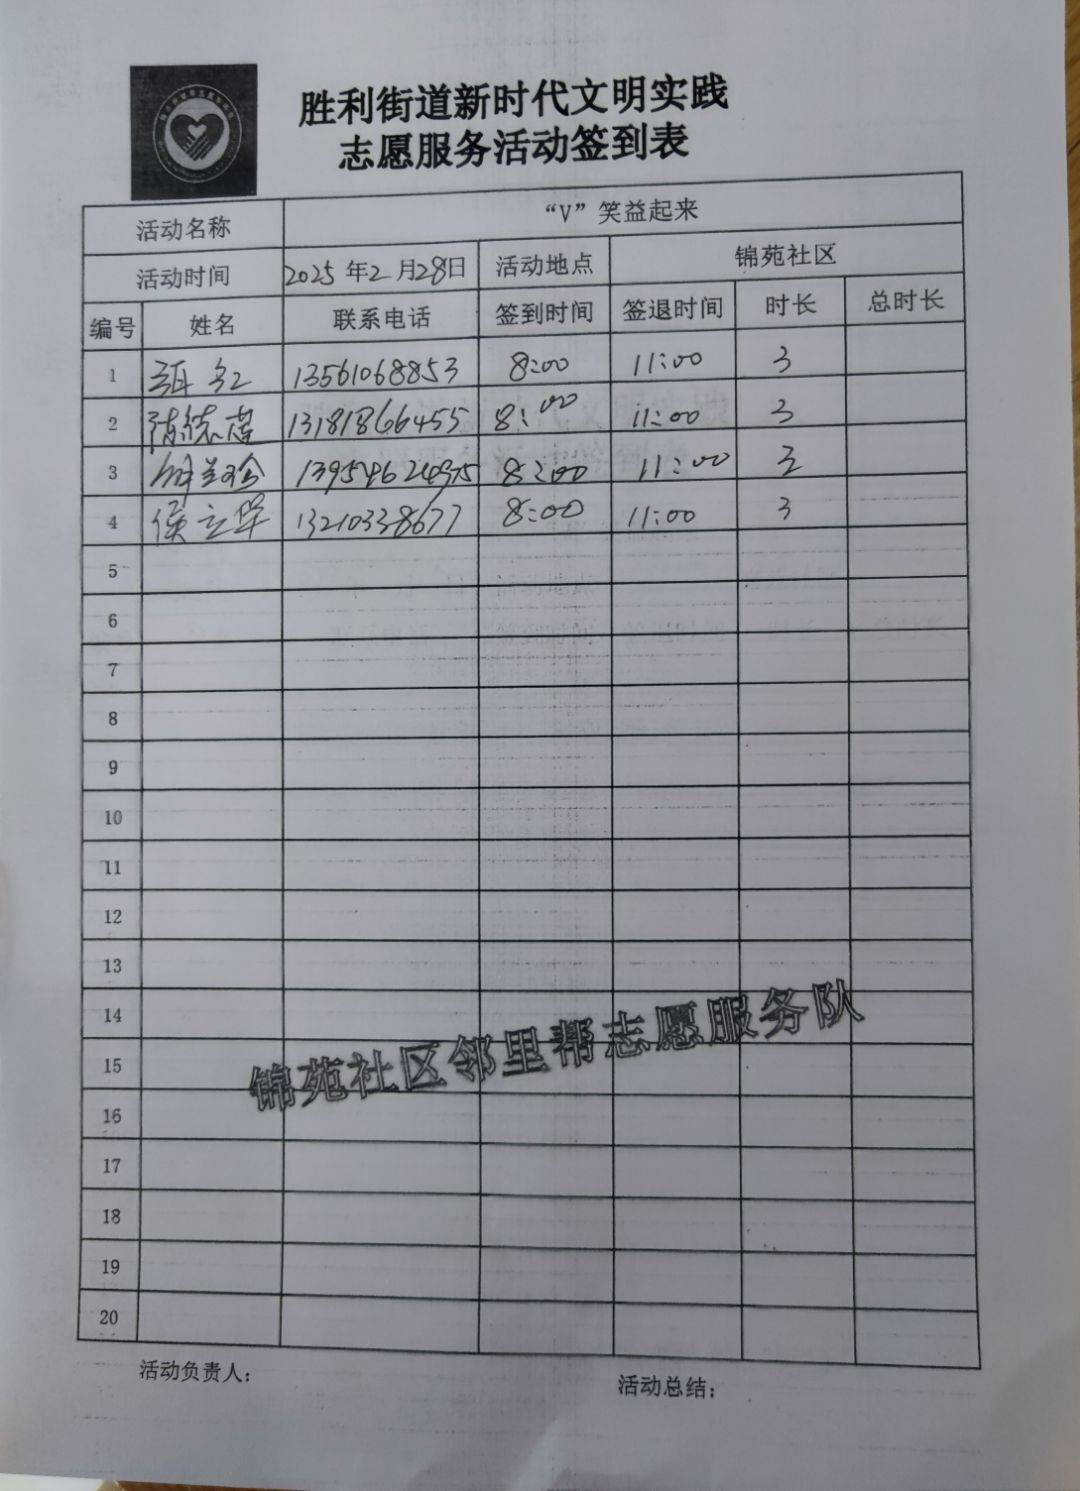 胜利街道新时代文明实践
志愿服务活动签到表
活动名称 “V”笑益起来
活动时间 2025年2月28日 活动地点 锦苑社区
编号 姓名 联系电话 签到时间 签退时间 时长 总时长
1 13561068853 8:00 11:00 3
2 13181866455 8:00 11:00 3
3 8:00 11:00 3
4 侯立华 13210338677 8:00 11:00 3
5
6
7
8
9
10
11
12
13
14
15
16
17
18
19
20
锦苑社区邻里帮志愿服务队
活动负责人： 活动总结：